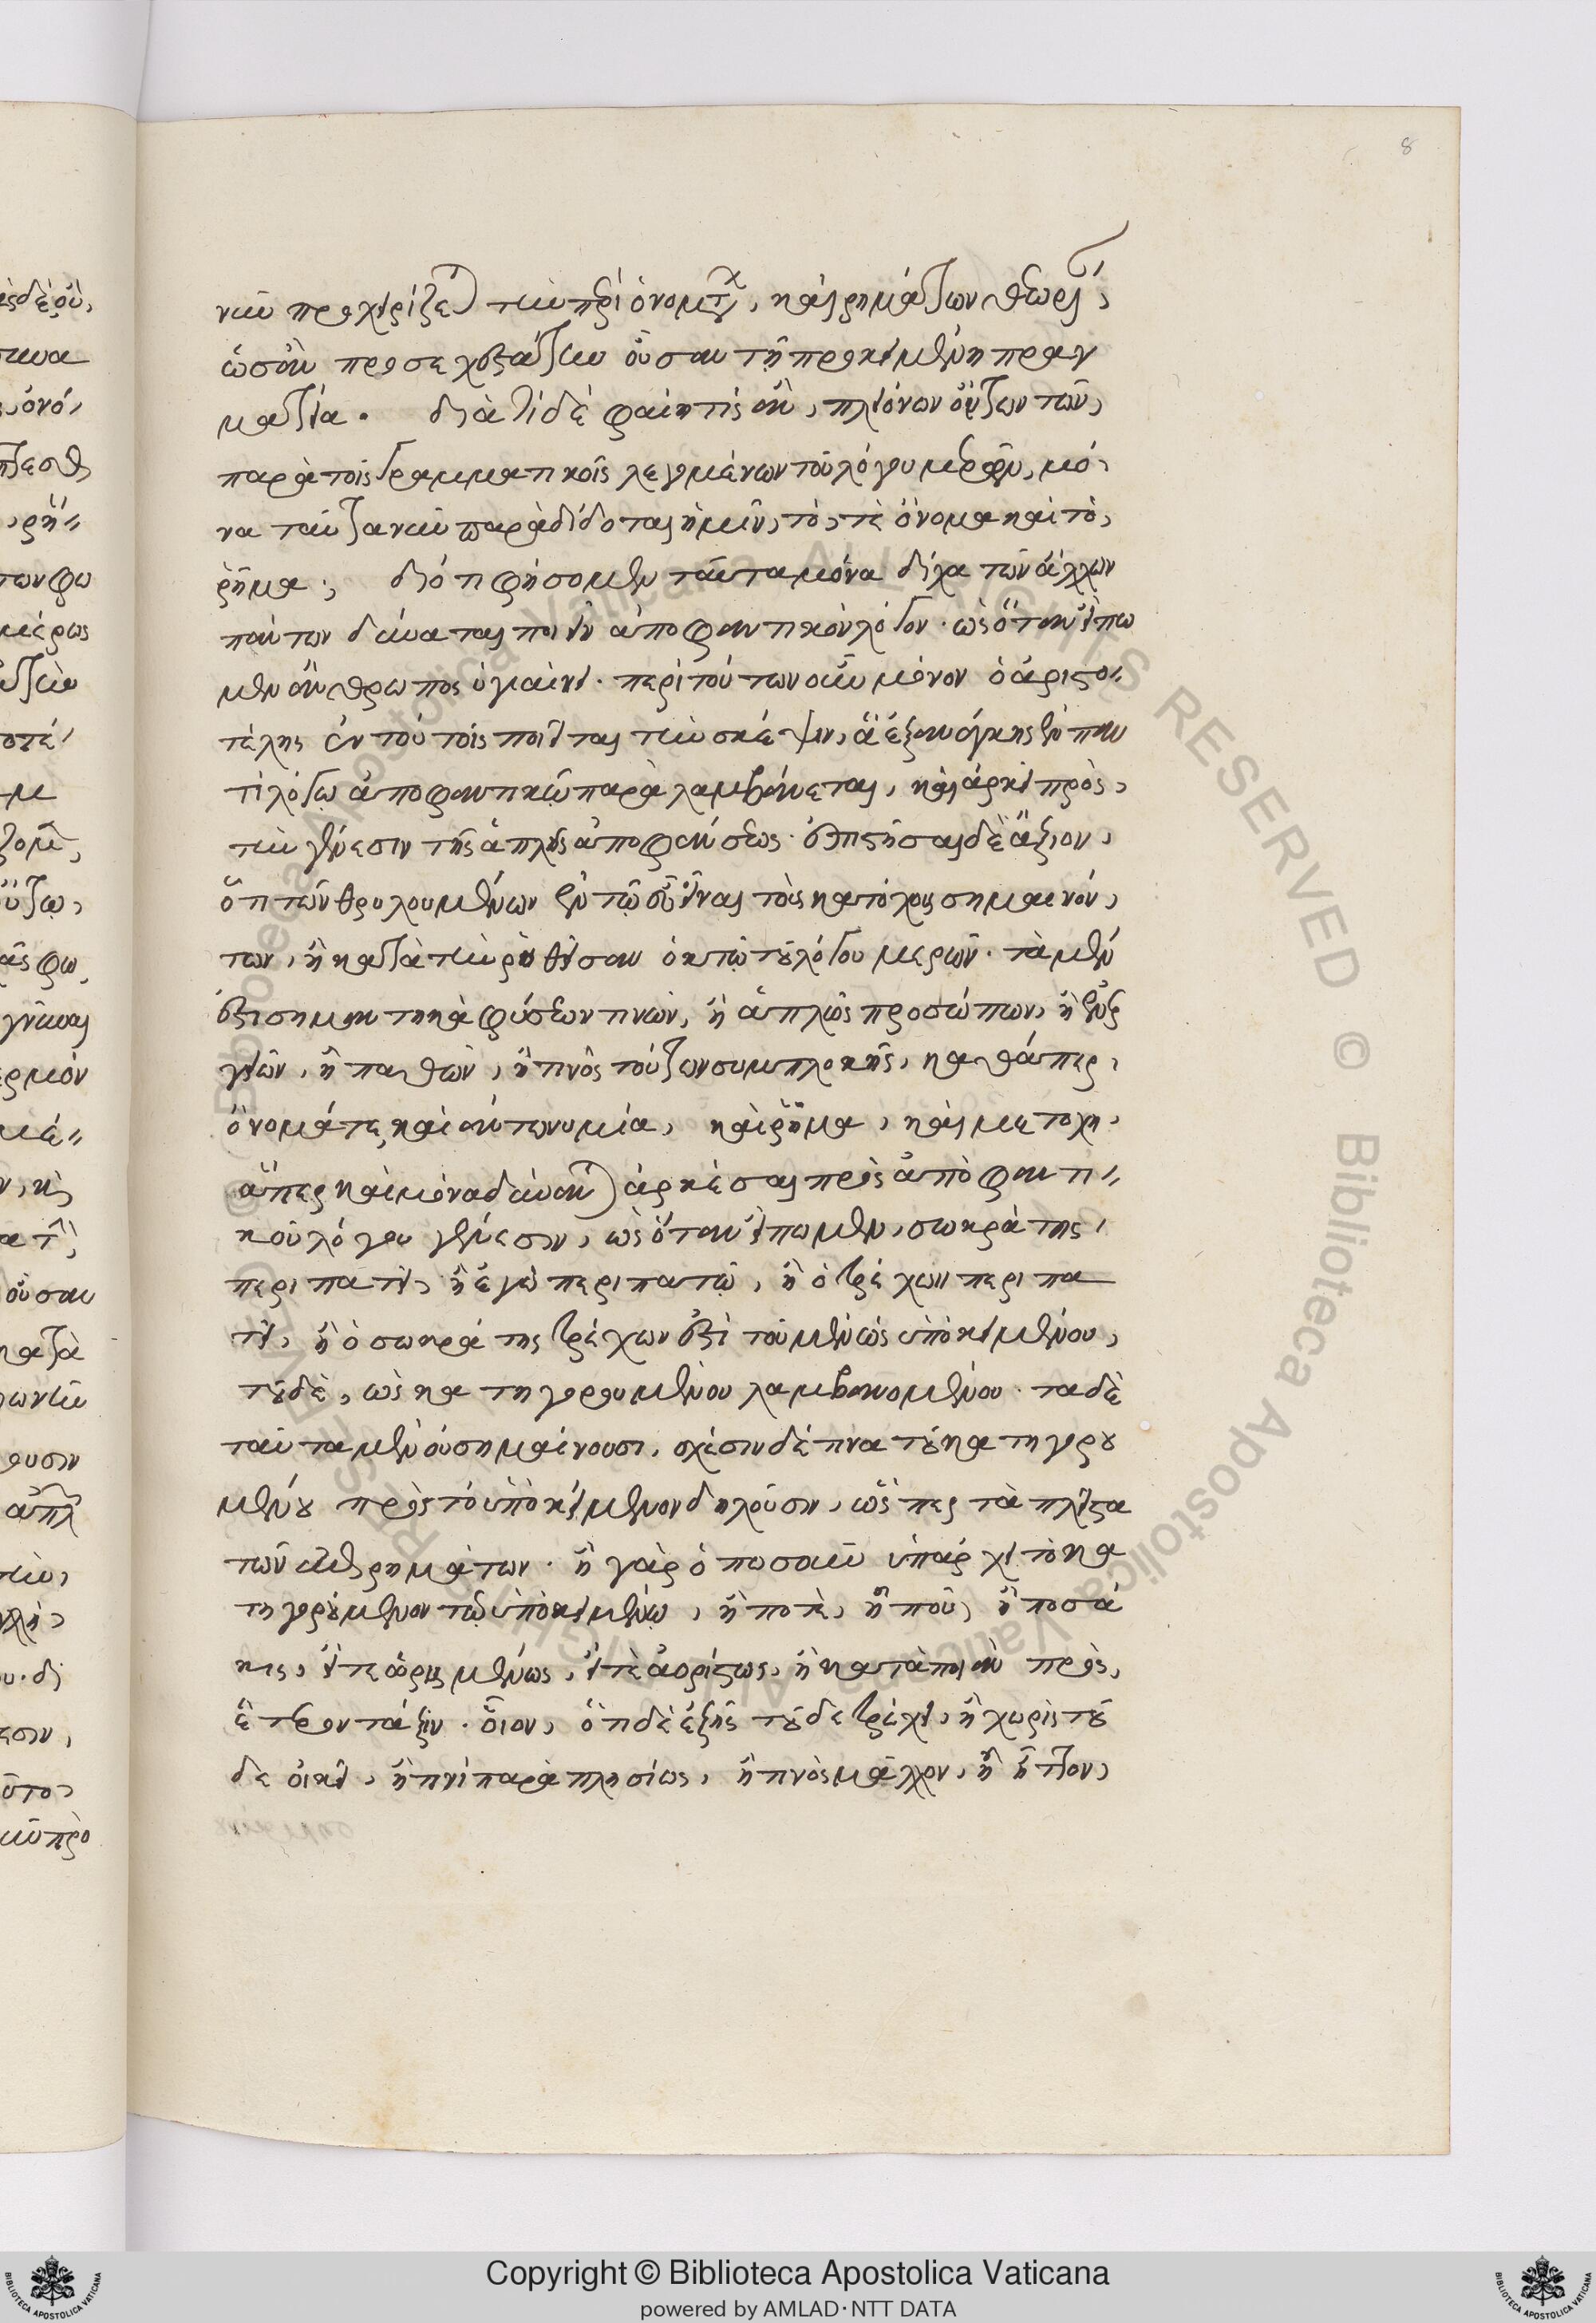 8
νῦν προχειρίζεται τὴν περὶ ὀνομάτων, καὶ ῥημάτων θεωρίαν,
ὡσὰν προσεχεστάτην οὖσαν τῇ προκειμένῃ πραγ
ματεία. διὰ τί δὲ φαίη τίς ἂν, πλειόνων ὄντων τῶν,
παρὰ τοῖς γραμματικοῖς λεγομένων τοῦ λόγου μερῶν, μό,
να ταῦτα νῦν παραδίδοται ἡμῖν, τό, τε ὄνομα καὶ τὸ,
ῥῆμα; διότι φήσομεν ταῦτα μόνα δίχα τῶν ἄλλων
πάντων δύναται ποιεῖν ἀποφαντικὸν λόγον. ὡς ὅταν εἴπω
μεν ἄνθρωπος ὑγιαίνει. περὶ τούτων οὖν μόνον ὁ ἀριστο=
τέλης ἐν τούτοις ποιεῖται τὴν σκέψιν, ἃ ἐξανάγκης ἐν παν
τὶ λόγῳ ἀποφαντικῷ παραλαμβάνεται, καὶ ἀρκεῖ πρὸς,
τὴν γένεσιν τῆς ἁπλῆς ἀποφάνσεως. ἐπιστῆσαι δὲ ἄξιον,
ὅτι τῶν θρυλουμένων ἐν τῷ συνεῖναι τοὺς καταλόγοις σημαινόν,
των, ἢ κατὰ τὴν ῥηθεῖσαν ὀκτὼ τοῦ λόγου μερῶν. τὰ μὲν
ἐστι σημαντικὰ φύσεων τινῶν, ἢ ἁπλῶς προσώπων, ἢ ἐνερ
γειῶν, ἢ παθῶν, ἤ τινος τούτων συμπλοκῆς, καθάπερ,
ὀνομά τε, καὶ ἀντωνυμία, καὶ ῥῆμα, καὶ μετοχὴ,
ἅπερ καὶ μόνα δύναται ἀρκέσαι πρὸς ἀποφαντι=
κοῦ λόγου γένεσιν, ὡς ὅταν εἴπωμεν, σωκράτης,
περιπατεῖ, ἢ ἐγὼ περιπατῶ, ἢ ὁ τρέχων περιπα
τεῖ, ἢ ὁ σωκράτης τρέχων ἐστὶ τοῦ μὲν ὡς ὑποκειμένου,
τοῦ δὲ, ὡς κατηγορουμένου λαμβανομένου. τα δὲ
ταῦτα μὲν οὐ σημαίνουσι, σχέσιν δέ τινα τοῦ κατηγορου
μένου πρὸς τὸ ὑποκείμενον δηλοῦσιν, ὥσπερ τὰ πλεῖστα
τῶν ἐπιρρημάτων. ἢ γὰρ ὁποσοῦν ὑπάρχει τὸ κα
τηγορούμενον τῷ ὑποκειμένῳ, ἢ ποτὲ, ἢ ποῦ, ἢ ποσά
κις, εἴτε ὁρισμένως, εἴτε ἀορίστως, ἢ κατὰ ποίαν πρὸς,
ἕτερον τάξιν. οἷον, ὅτι δὲ ἑξῆς τοῦ δε τρέχει, ἢ χωρὶς τοῦ
δε οἰκεῖ, ἤ τινι παραπλησίως, ἤ τινος μᾶλλον, ἢ ἧττον,
Copyright © Biblioteca Apostolica Vaticana
powered by AMLAD·NTT DATA